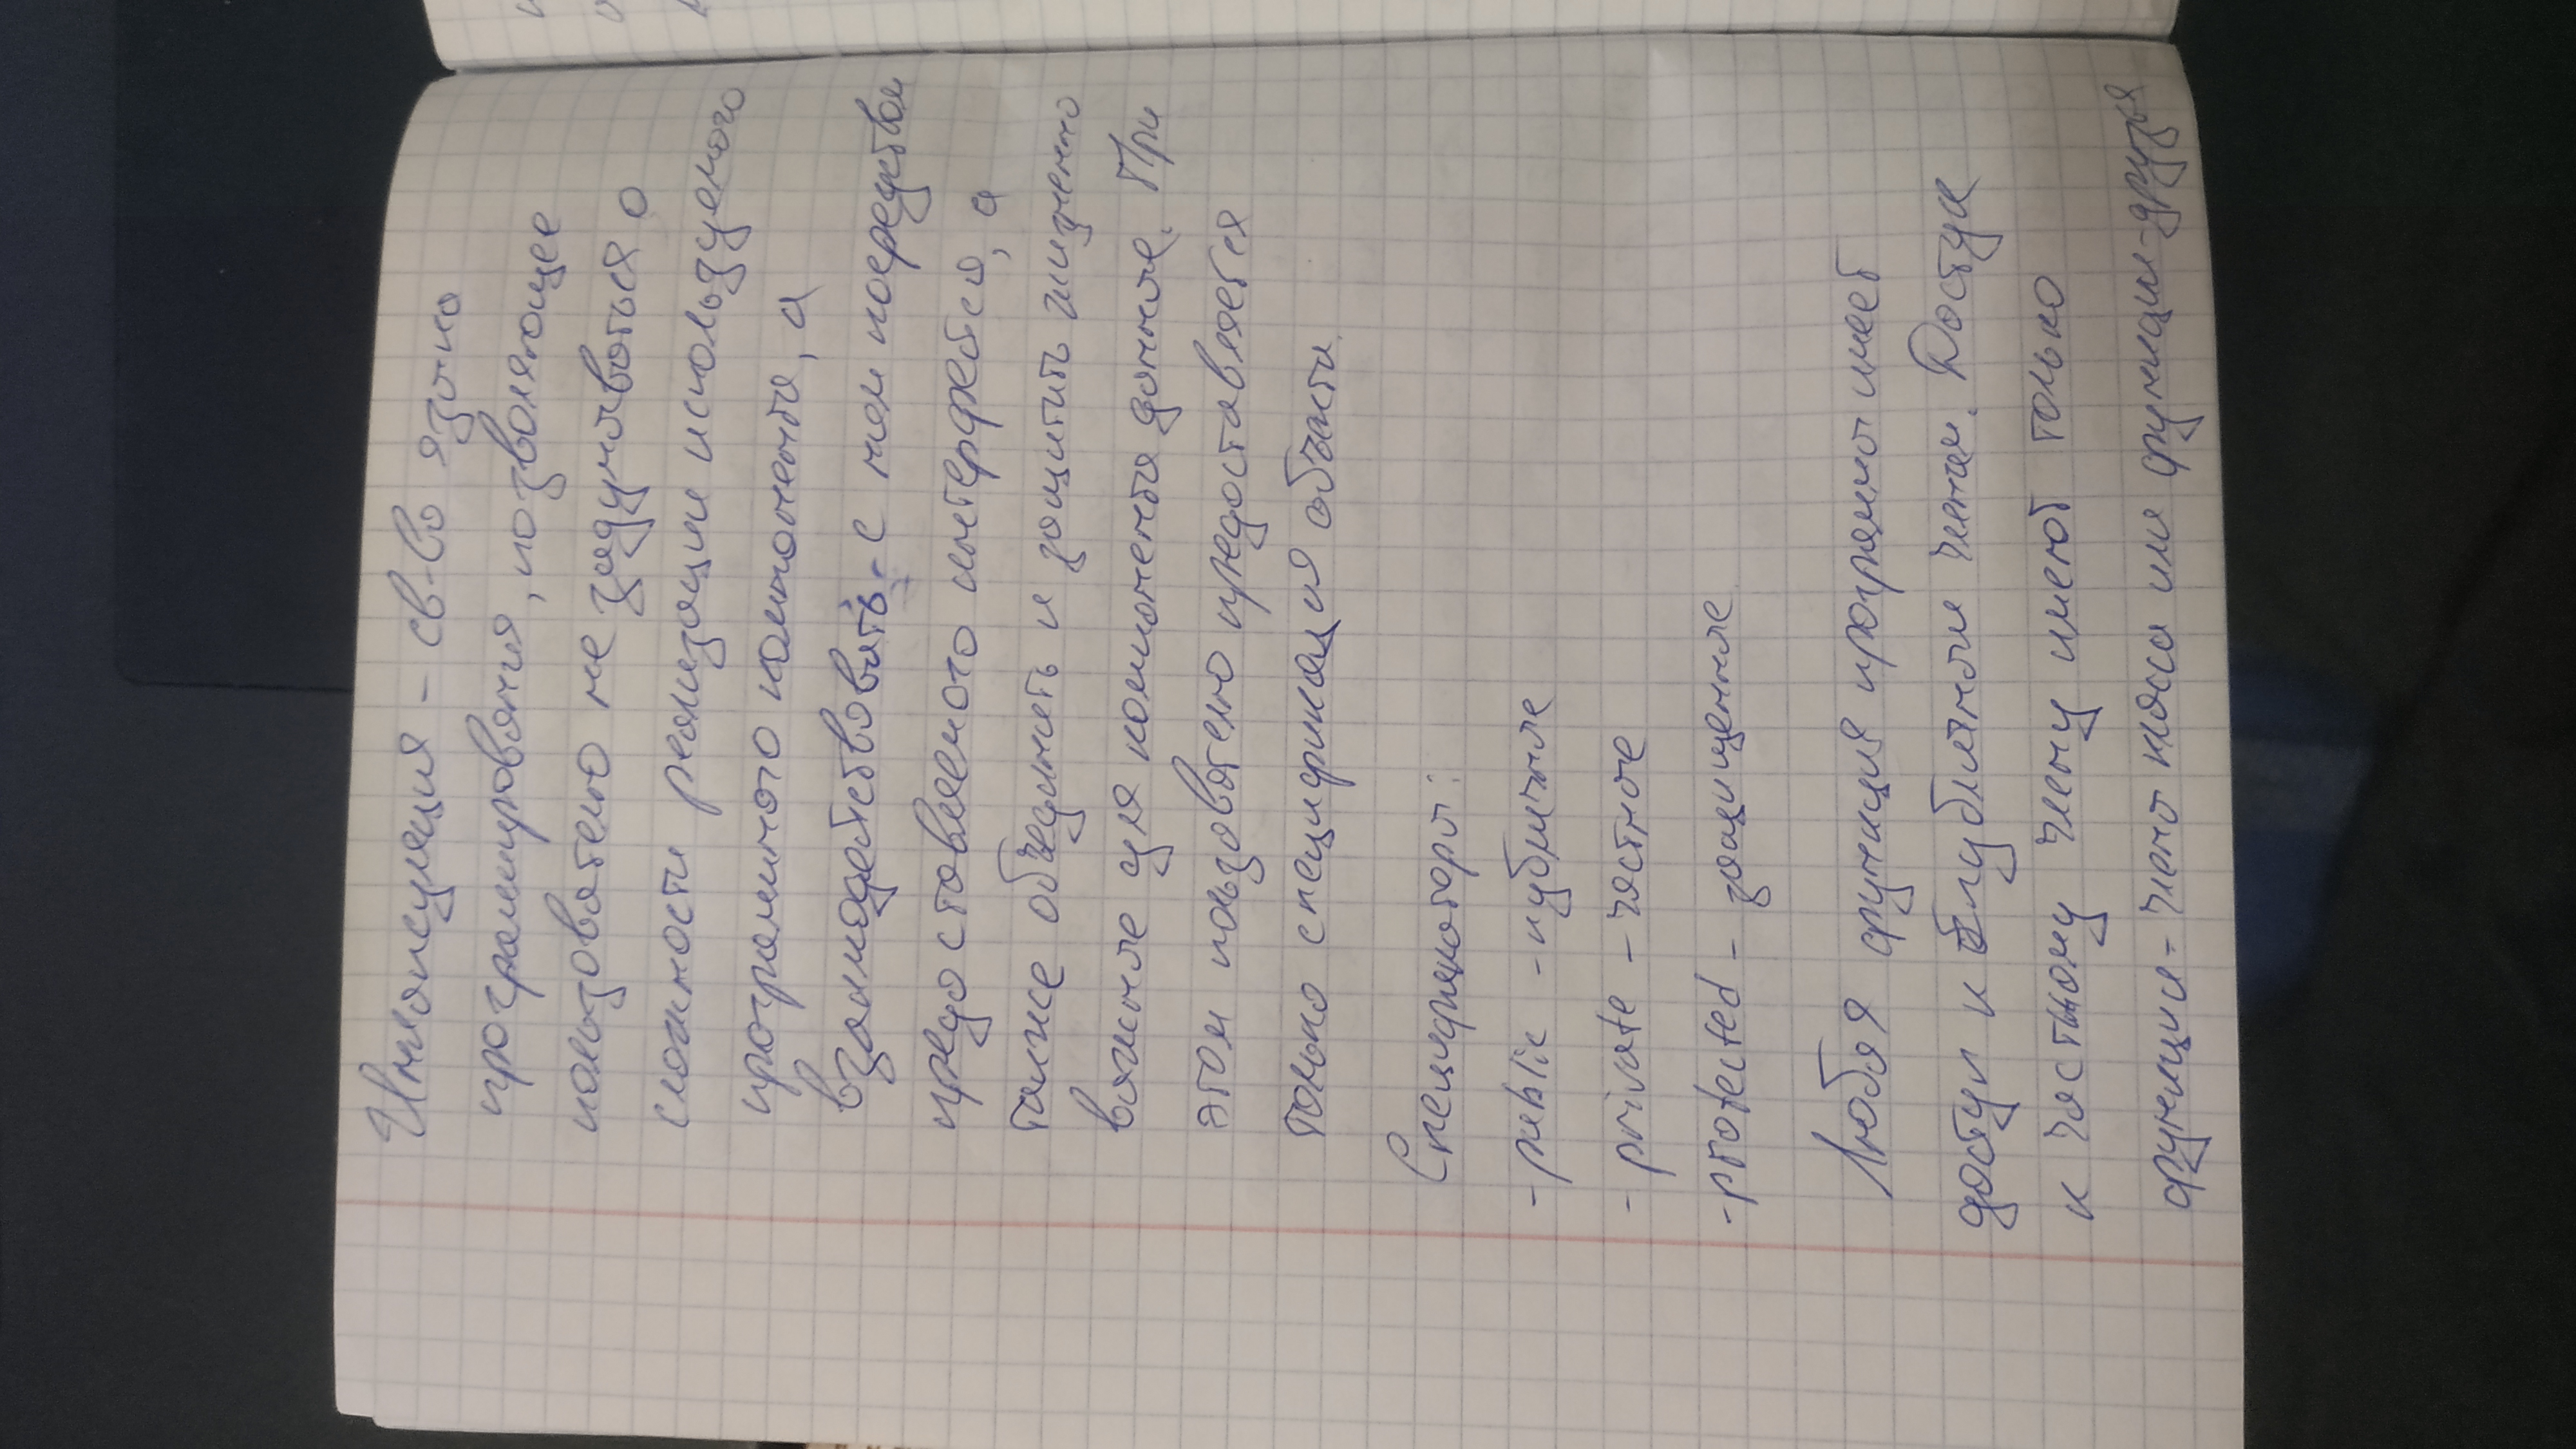 Инкапсуляция – св-во языка
программирования, позволяющее
пользователю не задумываться о
сложности реализации используемого
программного компонента, а
взаимодействовать с ним посредством
предоставляемого интерфейса, а
также объединить и защитить жизненно
важные для компонента данные. При
этом пользователю предоставляется
только спецификация объекта.
Спецификаторы:
- public - публичные
- private - частные
- protected - защищенные
Любая функция программы имеет
доступ к публичным членам. Доступ
к частному члену имеют только
функции-члены класса или функции-друзья